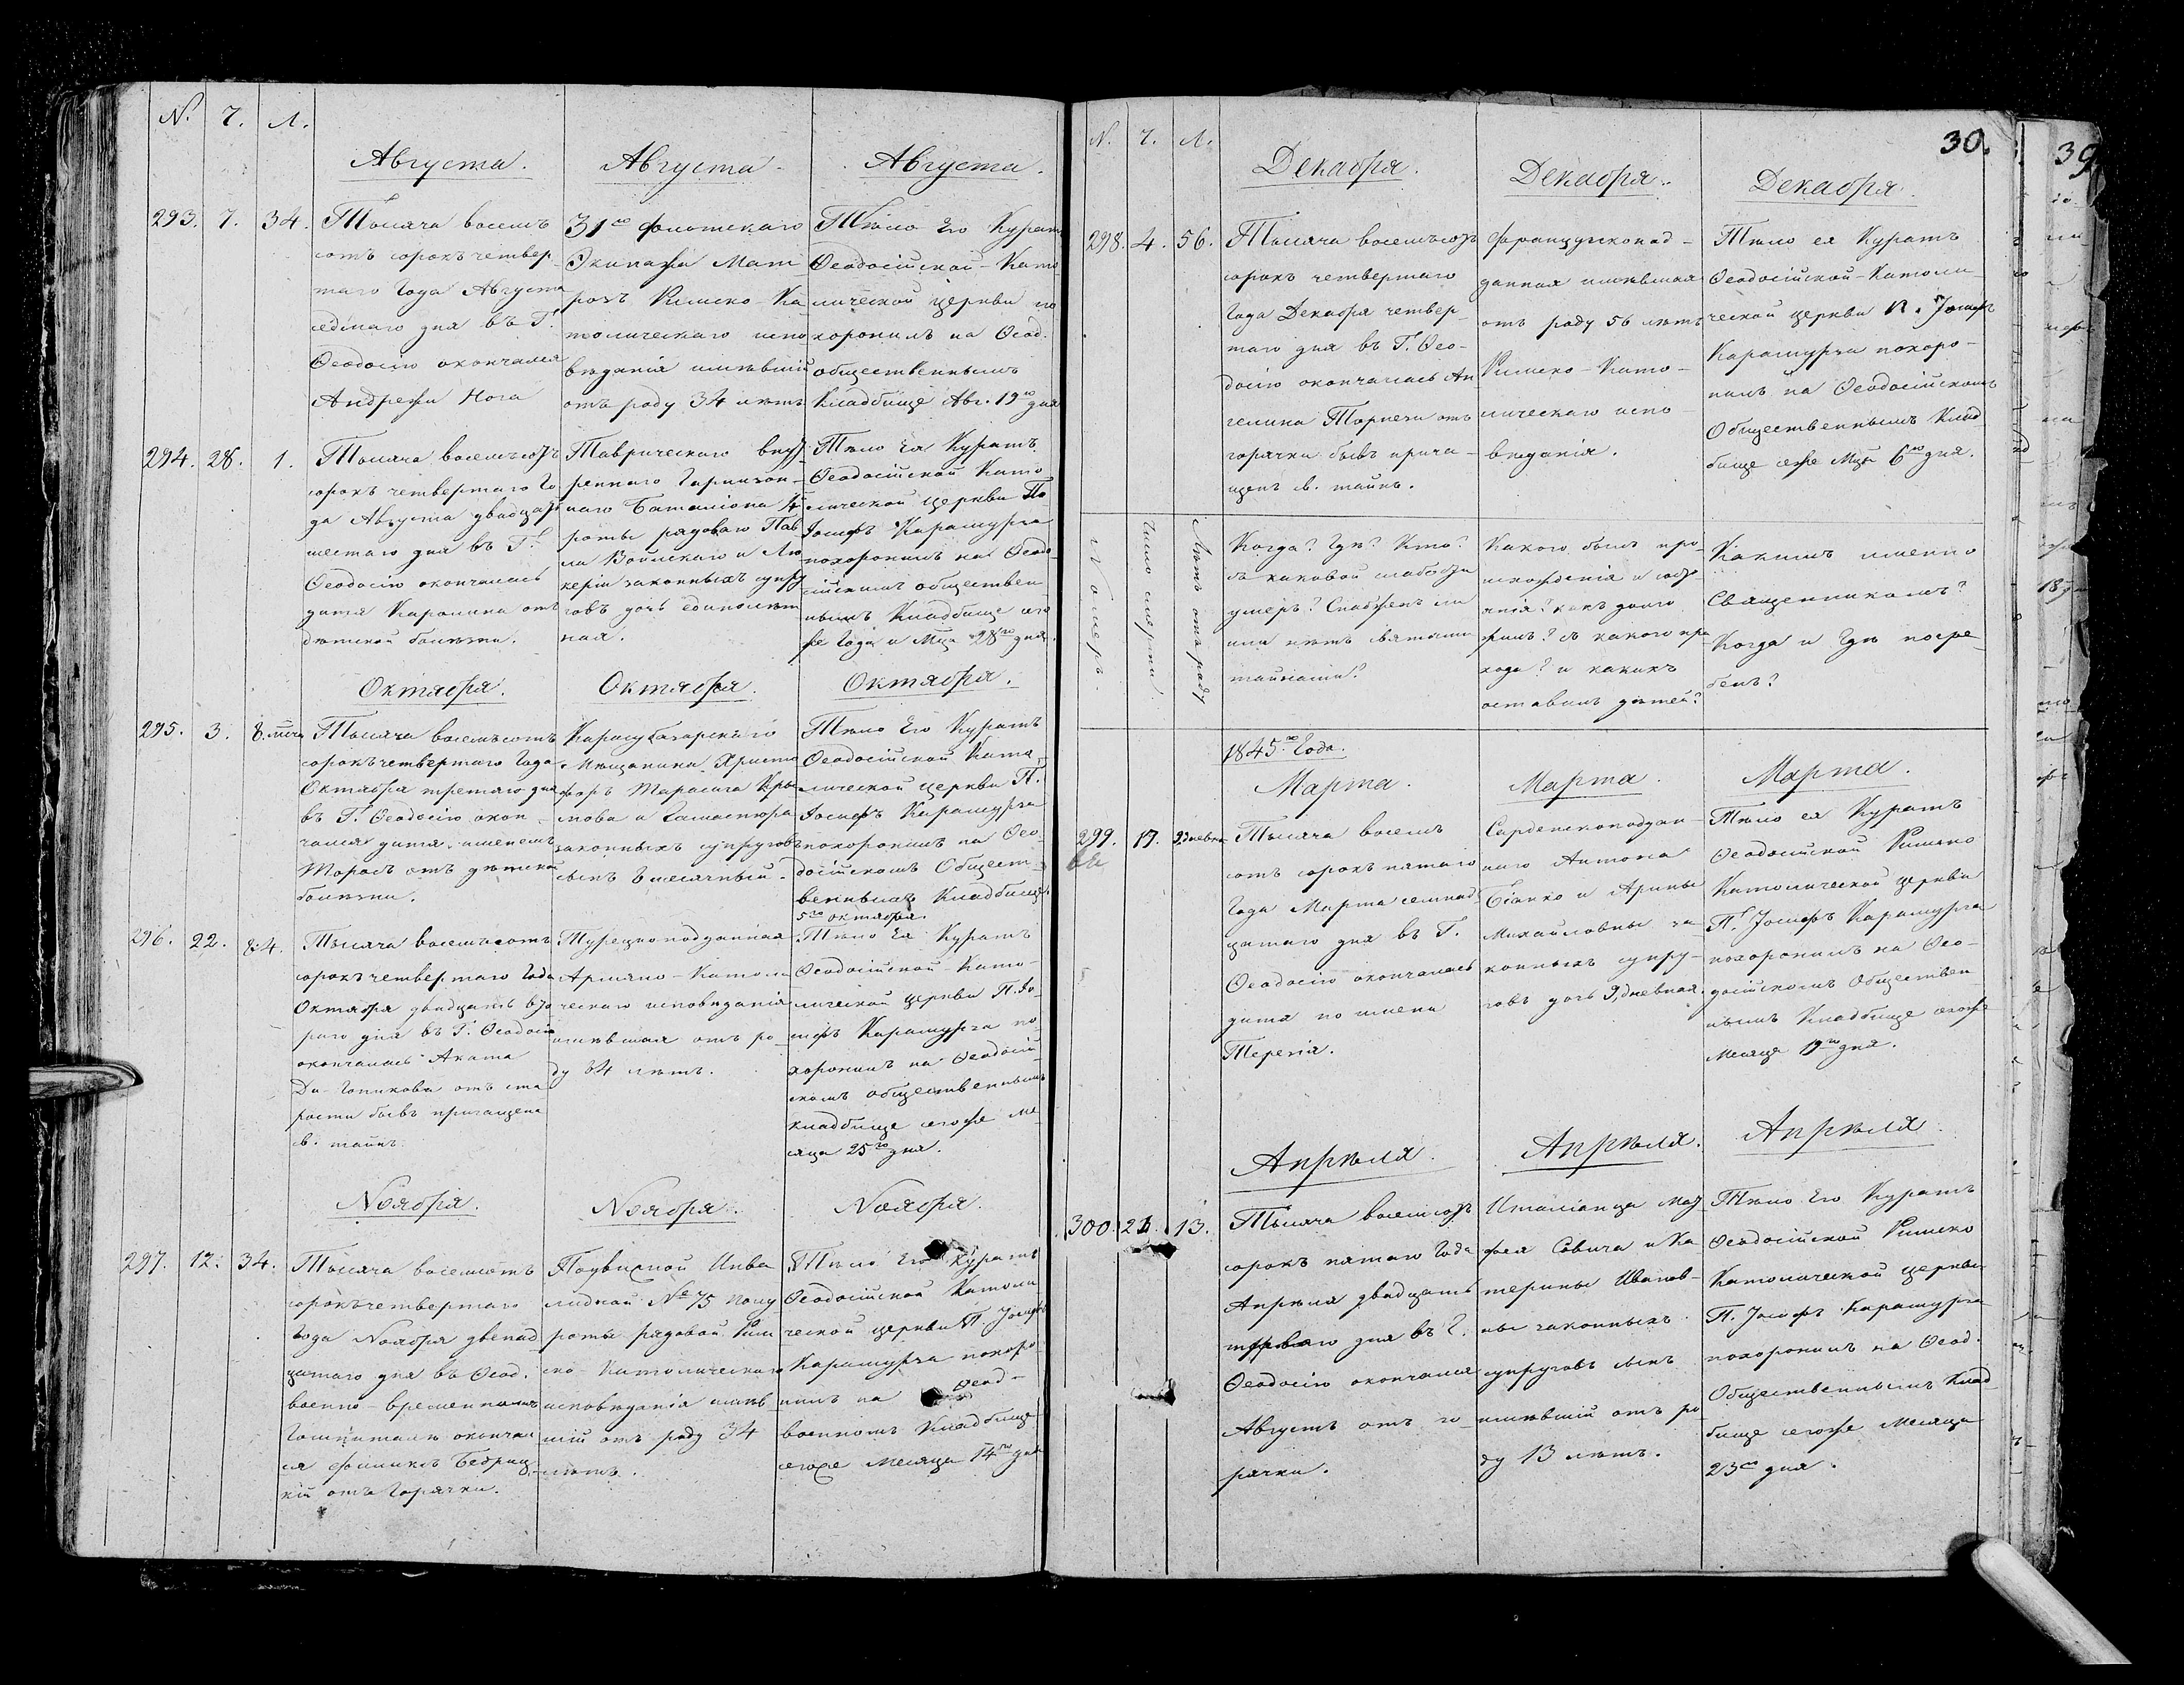 N. Ч. Л.
Августа.
293. 7. 34.
Тысяча восемъ
сотъ сорокъ четвер
таго Года Августа
седмаго дня въ Г.
Ѳеодосіи окончался
Андрежи Нога
Августа
31го флотскаго
Экипажа Мат
розъ Римско-Ка
толическаго испо
вѣданія имѣвшій
отъ роду 34 лѣтъ
Августа.
Тѣло Его Куратъ
Ѳеодосійской-Като
лической церкви по
хоронилъ на Ѳеод.
общественнымъ
Кладбищѣ Авг. 19го дня
294. 28. 1.
Тысяча восемьсотъ
сорокъ четвертаго Го
да Августа двадцать
шестаго дня въ Г.
Ѳеодосіи окончалась
дитя Каролина отъ
дѣтской болѣзни.
Таврическаго внут
ренняго Гарнизон-
наго Баталіона 4
роты рядоваго Пав
ла Войскаго и Лю
керіи законныхъ супру
говъ дочь единолѣт
ная.
Тѣло Ея Куратъ
Ѳеодосійской Като
лической церкви По
Іосифъ Карамурза
похоронилъ на Ѳеодо
сійскимъ обществен
нымъ Кладбище сего
же Года и Мца 28го дня.
Октября.
295. 3. 8. мсч
Тысяча восемьсотъ
сорокъ четвертаго Года
Октября третяго дня
въ Г. Ѳеодосіи окон-
чался дитя именемъ
Торосъ отъ дѣтской
болѣзни.
Октября.
Карасубазарскаго
Мѣщанина Христо
форъ Тарасига Кры
мова и Гамаспюра
законныхъ супруговъ
сынъ 8 месячный.
Октября.
Тѣло Его Куратъ
Ѳеодосійской Като
лической церкви П.
Іосифъ Карамурза
похоронилъ на Ѳео-
досійскомъ Общест-
веннымъ Кладбищѣ
5го октября.
296. 22. 84.
Тысяча восемьсотъ
сорокъ четвертаго Года
Октября двадцать вто
раго дня въ Г. Ѳеодосіи
окончалась Аната
Ди-Гопикова отъ ста
рости бывъ причащена
св. тайнъ.
Турецкоподданная
Армяно-Католи
ческаго исповѣданія
имѣвшая отъ ро-
ду 84 лѣтъ.
Тѣло Ея Куратъ
Ѳеодосійской-Като-
лической церкви П. Іо-
сифъ Карамурза по-
хоронилъ на Ѳеодосій
скомъ общественнымъ
кладбище сегоже Ме-
сяца 25го дня.
Ноября.
297. 12. 34.
Тысяча восемьсотъ
сорокъ четвертаго
Года Ноября двенад
цатаго дня въ Ѳеод.
военно-временномъ
Гошпиталѣ окончал
ся Филиксъ Бедриц-
кій отъ Горячки.
Ноября.
Подвижной Инва
лидной № 75 полу
роты рядовой Рим
ско-Католическаго
исповѣданія имѣв
шій отъ роду 34
лѣтъ.
Ноября.
Тѣло Его Куратъ
Ѳеодосійской Католи
ческой церкви П. Іосифъ
Карамурза похоро-
нилъ на Ѳеод-
военномъ Кладбище
сегоже Месяца 14го дня
30.
N. Ч. Л.
Декабря.
298. 4. 56.
Тысяча восемьсотъ
сорокъ четвертаго
Года Декабря четвер-
таго дня въ Г. Ѳео-
досіи окончалась Ан
гелина Торпези отъ
горячки бывъ прича-
щенъ св. тайнъ.
Декабря.
Французскопод-
данная имѣвшая
отъ роду 56 лѣтъ
Римско-Като-
лическаго испо-
вѣданія.
Декабря.
Тѣло ея Куратъ
Ѳеодосійской-Католи-
ческой церкви П. Іосифъ
Карамурза похоро-
нилъ на Ѳеодосійскомъ
Общественнымъ Клад
бище сегоже Мца 6го дня.
Номеръ.
Число смерти
Лѣтъ отъ роду
Когда? Гдѣ? Кто?
съ каковой слабости
умеръ? Снабженъ ли
или нѣтъ святыми
тайнами?
Какого былъ про-
исхожденія и состо
янія? какъ долго
жилъ? съ какого при
хода? и какихъ
оставилъ дѣтей?
Какимъ именно
Священникомъ?
Когда и гдѣ погре-
бенъ?
1845го Года.
Марта.
299. 17. 9дневна
Тысяча восемъ
сотъ сорокъ пятаго
Года Марта семнад
цатаго дня въ Г.
Ѳеодосіи окончалась
дитя по имени
Терезія.
Марта.
Сарденскоподдан-
наго Антона
Біанко и Арины
Михайловны за
конныхъ супру-
говъ дочь 9дневная.
Марта.
Тѣло ея Куратъ
Ѳеодосійской Римско
Католической церкви
П. Іосифъ Карамурза
похоронилъ на Ѳео-
досійскомъ Обществен
нымъ Кладбище сегоже
Месяца 19го дня.
Апрѣля.
300. 21. 13.
Тысяча восемьсотъ
сорокъ пятаго Года
Апрѣля двадцать
перваго дня въ Г.
Ѳеодосіи окончался
Августъ отъ го-
рячки.
Апрѣля.
Италіанца Мат
фея Савича и Ка
терины Иванов-
ны законныхъ
супруговъ сынъ
имѣвшій отъ ро
ду 13 лѣтъ.
Апрѣля.
Тѣло Его Куратъ
Ѳеодосійской Римско
Католической церкви
П. Іосифъ Карамурза
похоронилъ на Ѳеод.
Общественнымъ Клад
бище сегоже Месяца
23го дня.
39